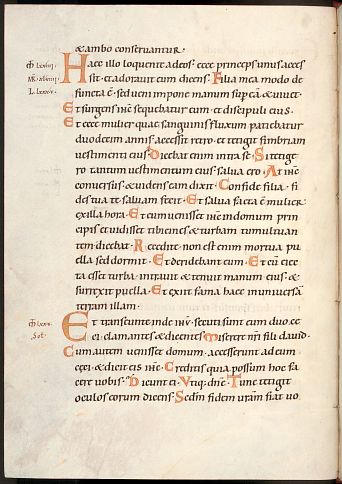 & ambo conseruantur.
Haec illo loquente ad eos. ecce princeps unus acces
sit. et adorauit eum dicens. Filia mea modo de
functa ē. sed ueni impone manum sup eā & uiuet.
Et surgens ihc̄ sequebatur eum. et discipuli eius.
Et ecce mulier quae sanguinis fluxum patiebatur
duodecim annis. accessit retro. et tetigit fimbriam
uestimenti eius. Dicebat enim intra se. Si tetige
ro tantum uestimentum eius salua ero. At ihc̄
conuersus & uidens eam dixit. Confide filia. fi
des tua te saluam fecit. Et salua facta ē mulier
ex illa hora. Et cum uenisset ihc̄ in domum prin
cipis et uidisset tibicines & turbam tumultuan
tem dicebat. Recedite. non est enim mortua pu
ella sed dormit. Et deridebant eum. Et cū eiec
ta esset turba intrauit & tenuit manum eius. &
surrexit puella. Et exiit fama haec in uniuersā
terram illam.
Et transeunte inde ihū. secuti sunt eum duo ce
ci. clamantes & dicentes. Miserere nr̄i fili dauid.
Cum autem uenisset domum. accesserunt ad eum
ceci. & dicit eis ihc̄. Creditis quia possum hoc fa
cere uobis. Dicunt ei. Utiq; dn̄e. Tunc tetigit
oculos eorum dicens. Scdm̄ fidem urām fiat uo